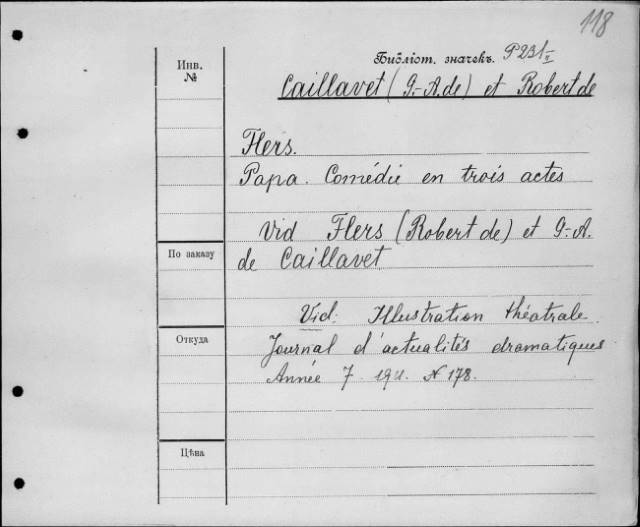 118
Библіот. значекъ. P231/II
Инв.
№
Caillavet (G.-A. de) et Robert de
Flers.
Papa. Comédie en trois actes
Vid Flers (Robert de) et G.-A.
de Caillavet
По заказу
Vid: Illustration théatrale.
Откуда
Journal d'actualités dramatiques
Année 7. 1911. N 178.
Цѣна